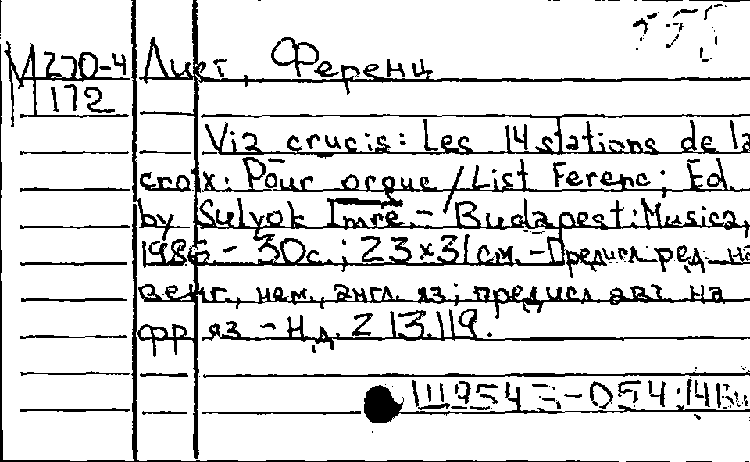 М270-4 Лист, Ференц
172
Via crucis: Les 14 stations de la
croix: Pour orgue / List Ferenc; Ed.
by Sulyok Imre. - Budapest: Musica,
1986 - 30с.; 23x31см. - Предисл. ред. на
венг., нем., англ. яз; предисл авт. на
фр яз. - Н.д. Z 13.119.
Щ9543-054:14